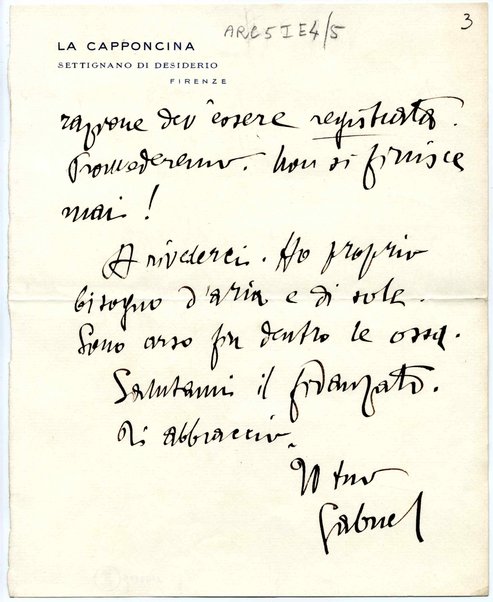 3
ARC 5 I E 4/5
LA CAPPONCINA
SETTIGNANO DI DESIDERIO
FIRENZE
razione dev'essere registrata.
Provvederemo. Non si finisce
mai!
A rivederci. Ho proprio
bisogno d'aria e di sole.
Sono arso fin dentro le ossa.
Salutami il fidanzato.
Ti abbraccio.
Il tuo
Gabriel